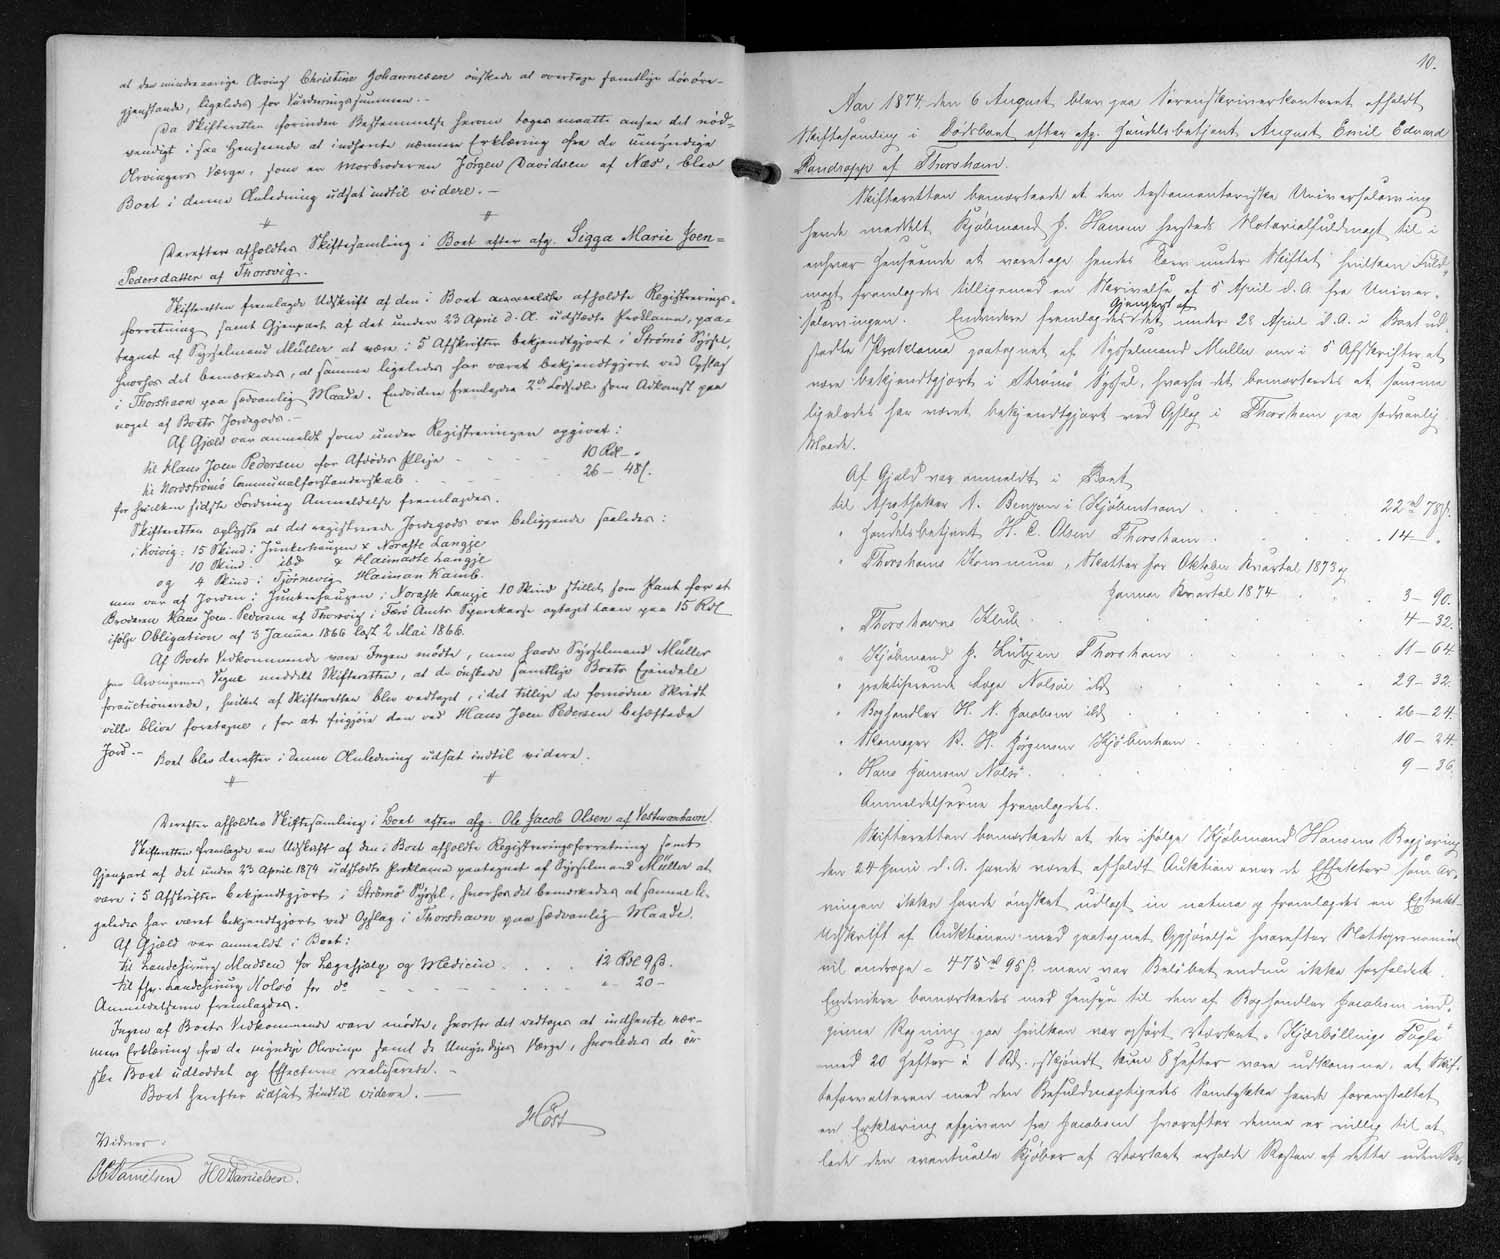 at den mindreaarige Arving Christine Johannesen ønskede at overtage samtlige Løsøre-
gjenstande, ligeledes for Vurderingssummen. -
Da Skifteretten forinden Bestemmelse herom toges maatte ansee det nød-
vendigt i saa Henseende at indhente nærmere Erklæring fra de umyndige
Arvingers Værge, som er Morbroderen Jørgen Davidsen af Næs, blev
Boet i denne Anledning udsat indtil videre. -
Derefter afholdtes Skiftesamling i Boet efter afg. Sigga Marie Joen-
Pedersdatter af Thorsvig.
Skifteretten fremlagde Udskrift af den i Boet afholdte Registrerings-
forretning samt Gjenpart af det under 23 April d. A. udstædte Proklama, paa-
tegnet af Sysselmand Müller at være i 5 Afskrifter bekjendtgjort i Strömö Syssel,
hvorhos det bemærkedes, at samme ligeledes har været bekjendtgjort ved Opslag
i Thorshavn paa sædvanlig Maade. Endvidere fremlagdes 2de Lodsedler som Adkomst paa
noget af Boets Jordegods. -
Af Gjæld var anmeldt som under Registreringen opgivet:
til Hans Joen Pedersen for Afdødes Pleje - - - 10 Rdl - "
til Nordströmö Communalforstanderskab - - - 26 - 48 ß.
for hvilken sidste Fordring Anmeldelse fremlagdes.
Skifteretten oplyste at det registrerede Jordegods var beliggende saaledes:
i Kvivig: 15 Skind i Junkerhaugen & Noraste Langje
10 Skind ibd & Haimaste Langje
og 4 Skind i Tjörnevig Haiman Kamb.
men var af Jorden i Junkerhaugen i Noraste Langje 10 Skind stillet som Pant for et
Broderen Hans Joen Pedersen af Thorsvig i Færø Amts Sparekasse optaget Laan paa 15 Rdl
ifølge Obligation af 3 Januar 1866 læst 2 Mai 1866.
Af Boets Vedkommende vare Ingen mødte, men havde Sysselmand Müller
paa Arvingernes Vegne meddelt Skifteretten, at de ønskede samtlige Boets Ejendele
forauctionerede, hvilket af Skifteretten blev vedtaget, idet tillige de fornødne Skridt
ville blive foretagne, for at frigjøre den ved Hans Joen Pedersen behæftede
Jord. - Boet blev derefter i denne Anledning udsat indtil videre.
Derefter afholdtes Skiftesamling i Boet efter afg. Ole Jacob Olsen af Vestmanhavn.
Skifteretten fremlagde en Udskrift af den i Boet afholdte Registreringsforretning samt
Gjenpart af det under 23 April 1874 udstædte Proklama paategnet af Sysselmand Müller at
være i 5 Afskrifter bekjendtgjort i Strömö Syssel, hvorhos det bemærkedes at samme li-
geledes har været bekjendtgjort ved Opslag i Thorshavn paa sædvanlig Maade.
Af Gjæld var anmeldt i Boet:
til Landchirurg Madsen for Lægehjælp og Medicin . . . . 12 Rdl 9 ß.
til fhv. Landchirurg Nolsö for do - - - - - " - 20 -
Anmeldelserne fremlagdes.
Ingen af Boets Vedkommende vare mødte, hvorfor det vedtoges at indhente nær-
mere Erklæring fra de myndige Arvinge samt de Umyndiges Værge, hvorledes de øn-
ske Boet udloddet og Effecterne realiserede. -
Boet herefter udsat indtil videre. -
Höst
Vidner:
OC Danielsen HC Danielsen.
10.
Aar 1874 den 6 August blev paa Sorenskriverkontoret afholdt
Skiftesamling i Dødsboet efter afg. Handelsbetjent August Emil Edvard
Randropp af Thorshavn.
Skifteretten bemærkede at den testamentariske Universalarving
havde meddelt Kjøbmand J. Hansen hersteds Notarialfuldmagt til i
enhver Henseende at varetage hendes Tarv under Skiftet hvilken Fuld-
magt fremlagdes tilligemed en Skrivelse af 5 April d. A. fra Univer-
salarvingen. Endvidere fremlagdes Gjenpart af det under 28 April d. A. i Boet ud-
stedte Proklama paategnet af Sysselmand Müller om i 5 Afskrifter at
være bekjendtgjort i Strömö Syssel, hvorhos det bemærkedes at samme
ligeledes har været bekjendtgjort ved Opslag i Thorshavn paa sædvanlig
Maade.
Af Gjæld var anmeldt i Boet
til Apotheker A. Benzon i Kjøbenhavn . . . 22 rd 78 ß.
" Handelsbetjent H. C. Olsen Thorshavn . . . 14 - "
" Thorshavns Kommune, Skatter for Oktober Kvartal 1873 og
Januar Kvartal 1874 . . . 3 - 90.
" Thorshavns Klub . . . 4 - 32.
" Kjøbmand J. Lützen Thorshavn . . . 11 - 64.
" praktiserende Læge Nolsöe ibd . . . 29 - 32.
" Boghandler H. N. Jacobsen ibd . . . 26 - 24.
" Skomager P. H. Jørgensen Kjøbenhavn . . . 10 - 24.
" Hans Jansen Nolsö . . . 9 - 36.
Anmeldelserne fremlagdes.
Skifteretten bemærkede at der ifølge Kjøbmand Hansens Begjæring
den 24 Juni d. A. havde været afholdt Auktion over de Effekter som Ar-
vingen ikke havde ønsket udlagt in natura og fremlagdes en Extrakt-
Udskrift af Auktionen med paategnet Opgjørelse hvorefter Nettoprovenuet
vil andrage = 475 rd 95 ß. men var Beløbet endnu ikke forfaldet.
Endvidere bemærkedes med Hensyn til den af Boghandler Jacobsen ind-
givne Regning paa hvilken var opført Værket "Kjærbøllings Fugle"
med 20 Hefter á 1 Rd., skjøndt kun 8 Hefter vare udkomne, at Skif-
teforvalteren med den Befuldmægtigedes Samtykke havde foranstaltet
en Erklæring afgiven fra Jacobsen hvorefter denne er villig til at
lade den eventuelle Kjøber af Værket erholde Resten af dette uden Be-